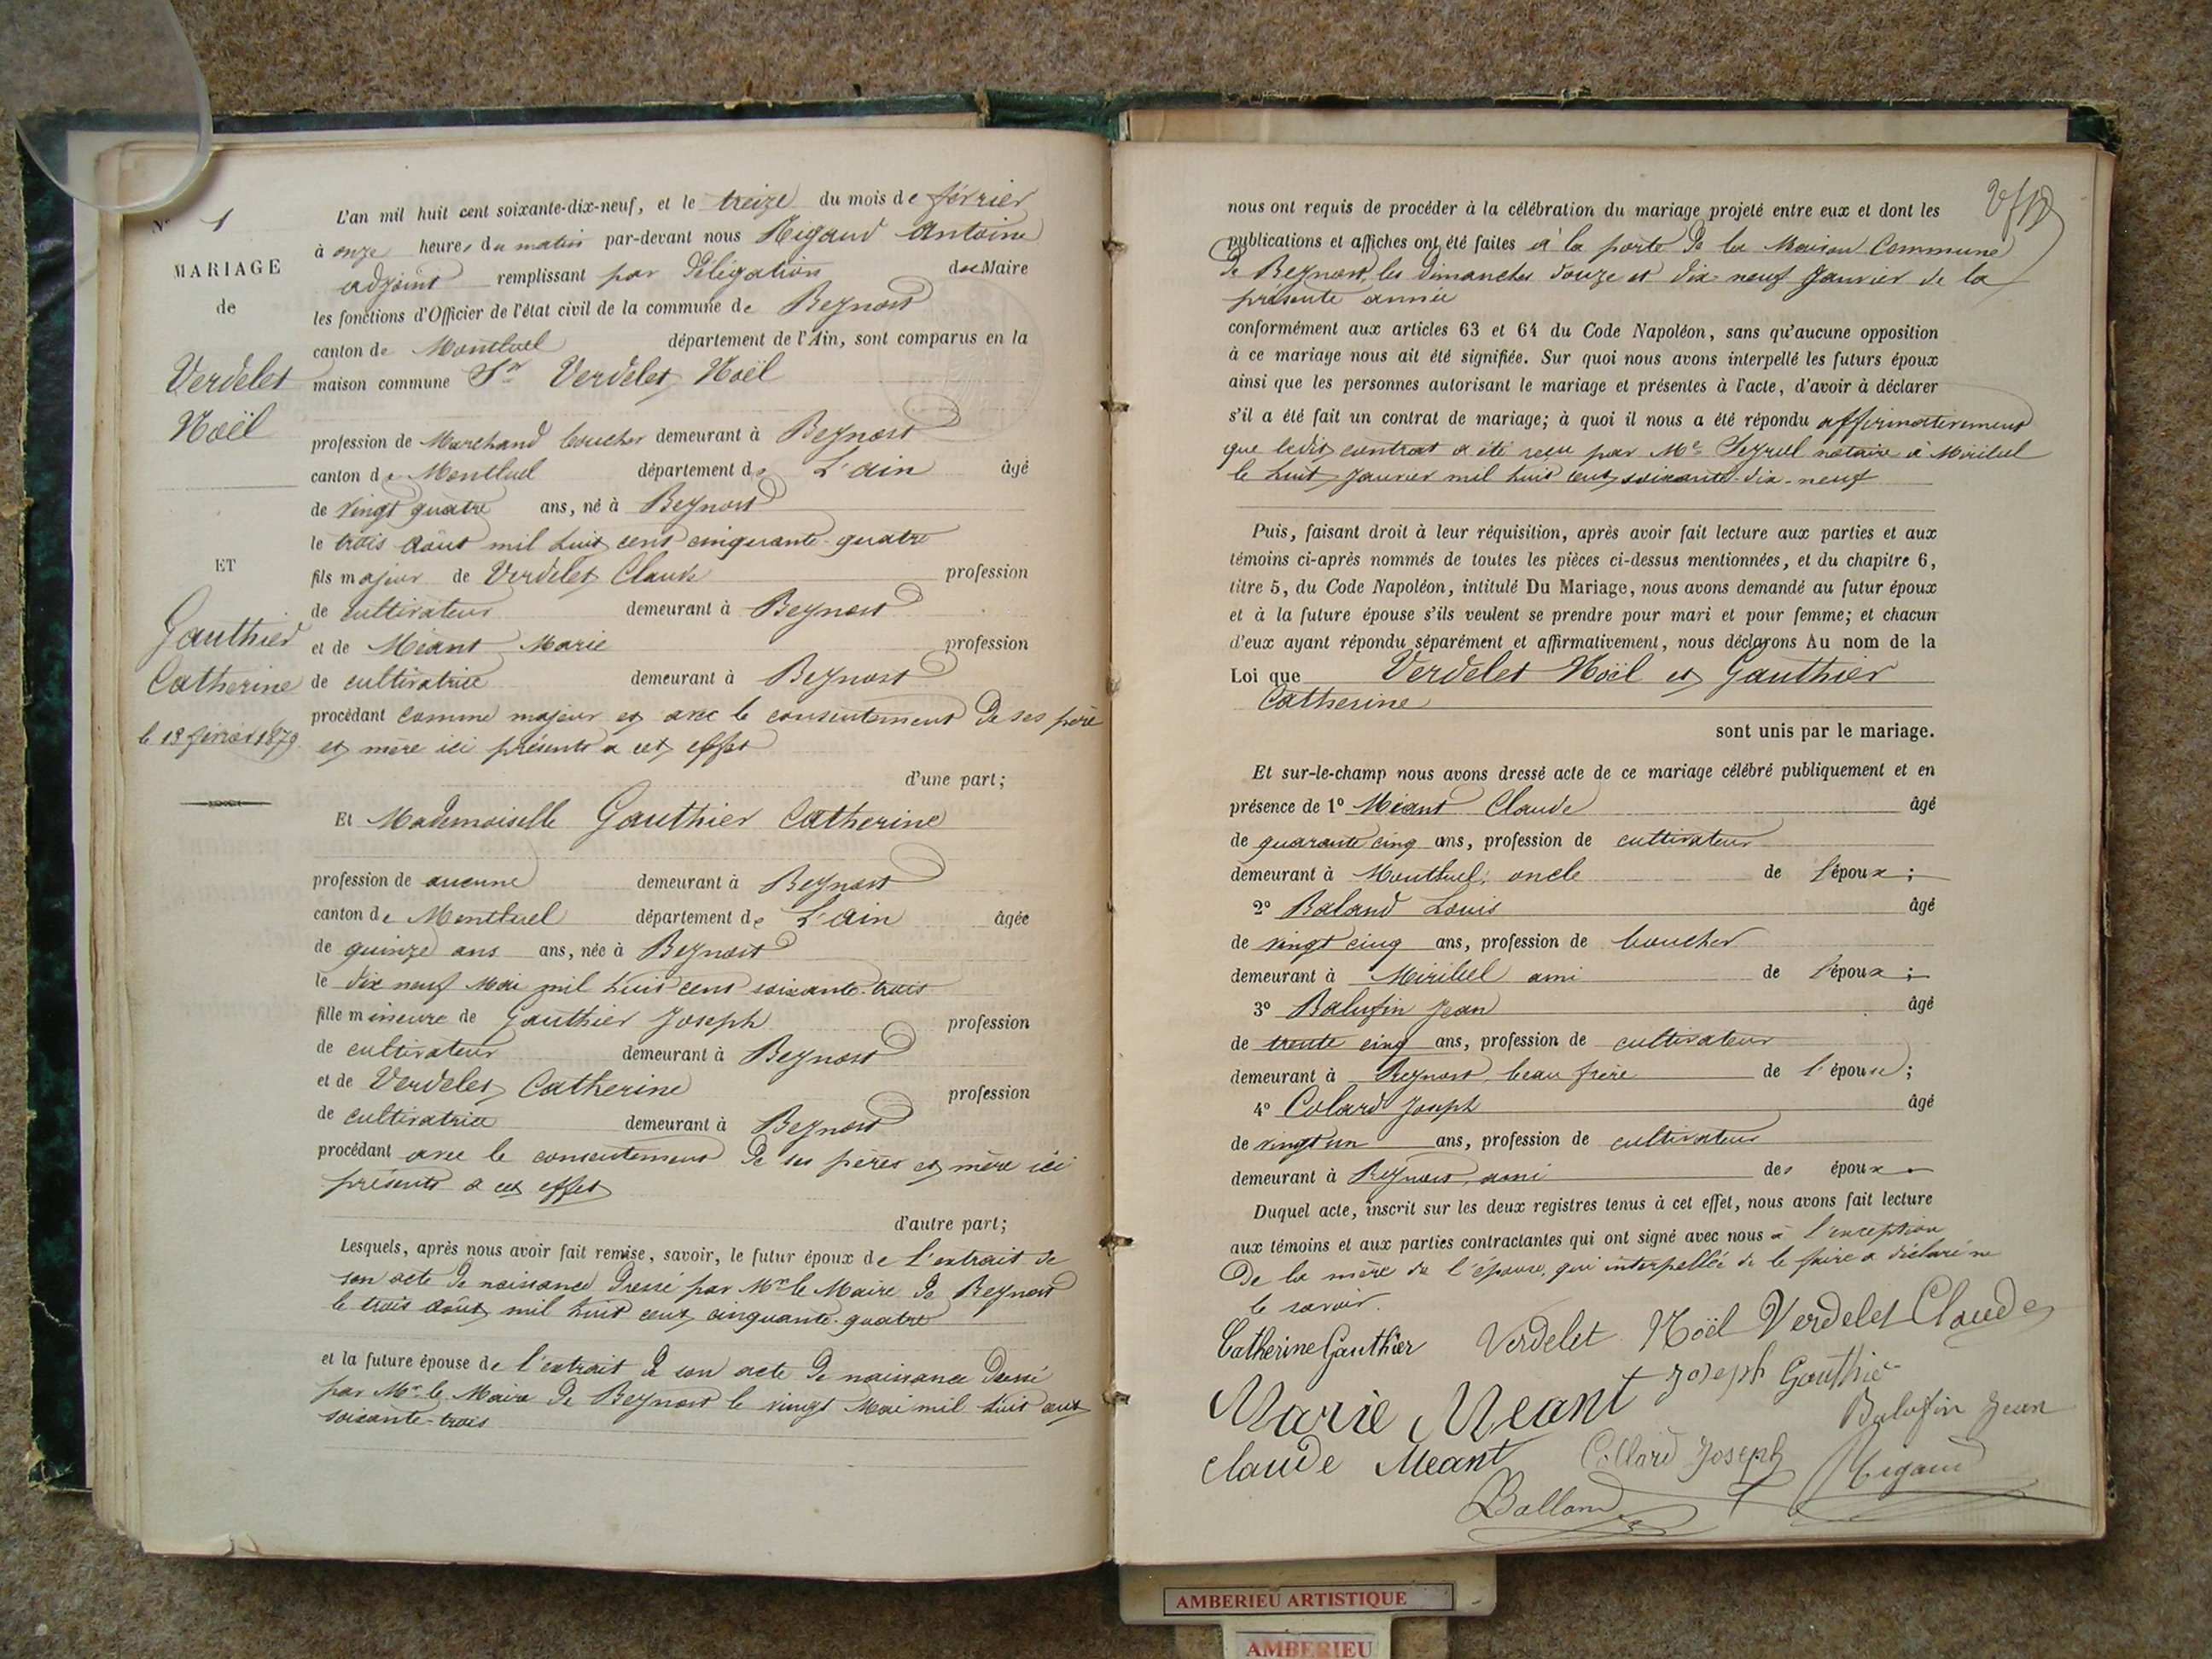 N° 1
MARIAGE
de
Verdelet
Noël
ET
Gauthier
Catherine
le 13 février 1879
L'an mil huit cent soixante-dix-neuf, et le treize du mois de février
à onze heures du matin par-devant nous Rigaud Antoine
adjoint remplissant par délégation du Maire
les fonctions d'Officier de l'état civil de la commune de Beynost
canton de Montluel département de l'Ain, sont comparus en la
maison commune Sr Verdelet Noël
profession de Marchand boucher demeurant à Beynost
canton de Montluel département de L'ain âgé
de vingt quatre ans, né à Beynost
le trois août mil huit cent cinquante-quatre
fils majeur de Verdelet Claude profession
de cultivateur demeurant à Beynost
et de Méant Marie profession
de cultivatrice demeurant à Beynost
procédant comme majeur et avec le consentement de ses père
et mère ici présents a cet effet
d'une part;
Et Mademoiselle Gauthier Catherine
profession de aucune demeurant à Beynost
canton de Montluel département de L'ain âgée
de quinze ans ans, née à Beynost
le dix neuf Mai mil huit cent soixante-trois
fille mineure de Gauthier Joseph profession
de cultivateur demeurant à Beynost
et de Verdelet Catherine profession
de cultivatrice demeurant à Beynost
procédant avec le consentement de ses pères et mère ici
présents a cet effet
d'autre part;
Lesquels, après nous avoir fait remise, savoir, le futur époux de l'extrait de
son acte de naissance dressé par Mr le Maire de Beynost
le trois août mil huit cent cinquante-quatre
et la future épouse de l'extrait de son acte de naissance dressé
par Mr le Maire de Beynost le vingt Mai mil huit cent
soixante-trois
nous ont requis de procéder à la célébration du mariage projeté entre eux et dont les
publications et affiches ont été faites à la porte de la Maison Commune
de Beynost, les dimanches douze et dix-neuf Janvier de la
présente année
conformément aux articles 63 et 64 du Code Napoléon, sans qu'aucune opposition
à ce mariage nous ait été signifiée. Sur quoi nous avons interpellé les futurs époux
ainsi que les personnes autorisant le mariage et présentes à l'acte, d'avoir à déclarer
s'il a été fait un contrat de mariage; à quoi il nous a été répondu affirmativement
que ledit contrat a été reçu par Me notaire à Miribel
le huit Janvier mil huit cent soixante-dix-neuf
Puis, faisant droit à leur réquisition, après avoir fait lecture aux parties et aux
témoins ci-après nommés de toutes les pièces ci-dessus mentionnées, et du chapitre 6,
titre 5, du Code Napoléon, intitulé Du Mariage, nous avons demandé au futur époux
et à la future épouse s'ils veulent se prendre pour mari et pour femme; et chacun
d'eux ayant répondu séparément et affirmativement, nous déclarons Au nom de la
Loi que Verdelet Noël et Gauthier
Catherine
sont unis par le mariage.
Et sur-le-champ nous avons dressé acte de ce mariage célébré publiquement et en
présence de 1° Méant Claude âgé
de quarante cinq ans, profession de cultivateur
demeurant à Montluel, oncle de l'époux;
2° Baland Louis âgé
de vingt cinq ans, profession de boucher
demeurant à Miribel ami de l'époux;
3° Balufin Jean âgé
de trente cinq ans, profession de cultivateur
demeurant à Beynost, beau frère de l'épouse;
4° Colard Joseph âgé
de vingt un ans, profession de cultivateur
demeurant à Beynost, ami des époux.
Duquel acte, inscrit sur les deux registres tenus à cet effet, nous avons fait lecture
aux témoins et aux parties contractantes qui ont signé avec nous à l'exception
de la mère de l'épouse, qui interpellée de le faire a déclaré ne
le savoir.
Catherine Gauthier Verdelet Noël Verdelet Claude
Marie Meant Joseph Gauthier
Balufin Jean
Claude Meant Collard Joseph Rigaud
Balland
AMBERIEU ARTISTIQUE
AMBERIEU